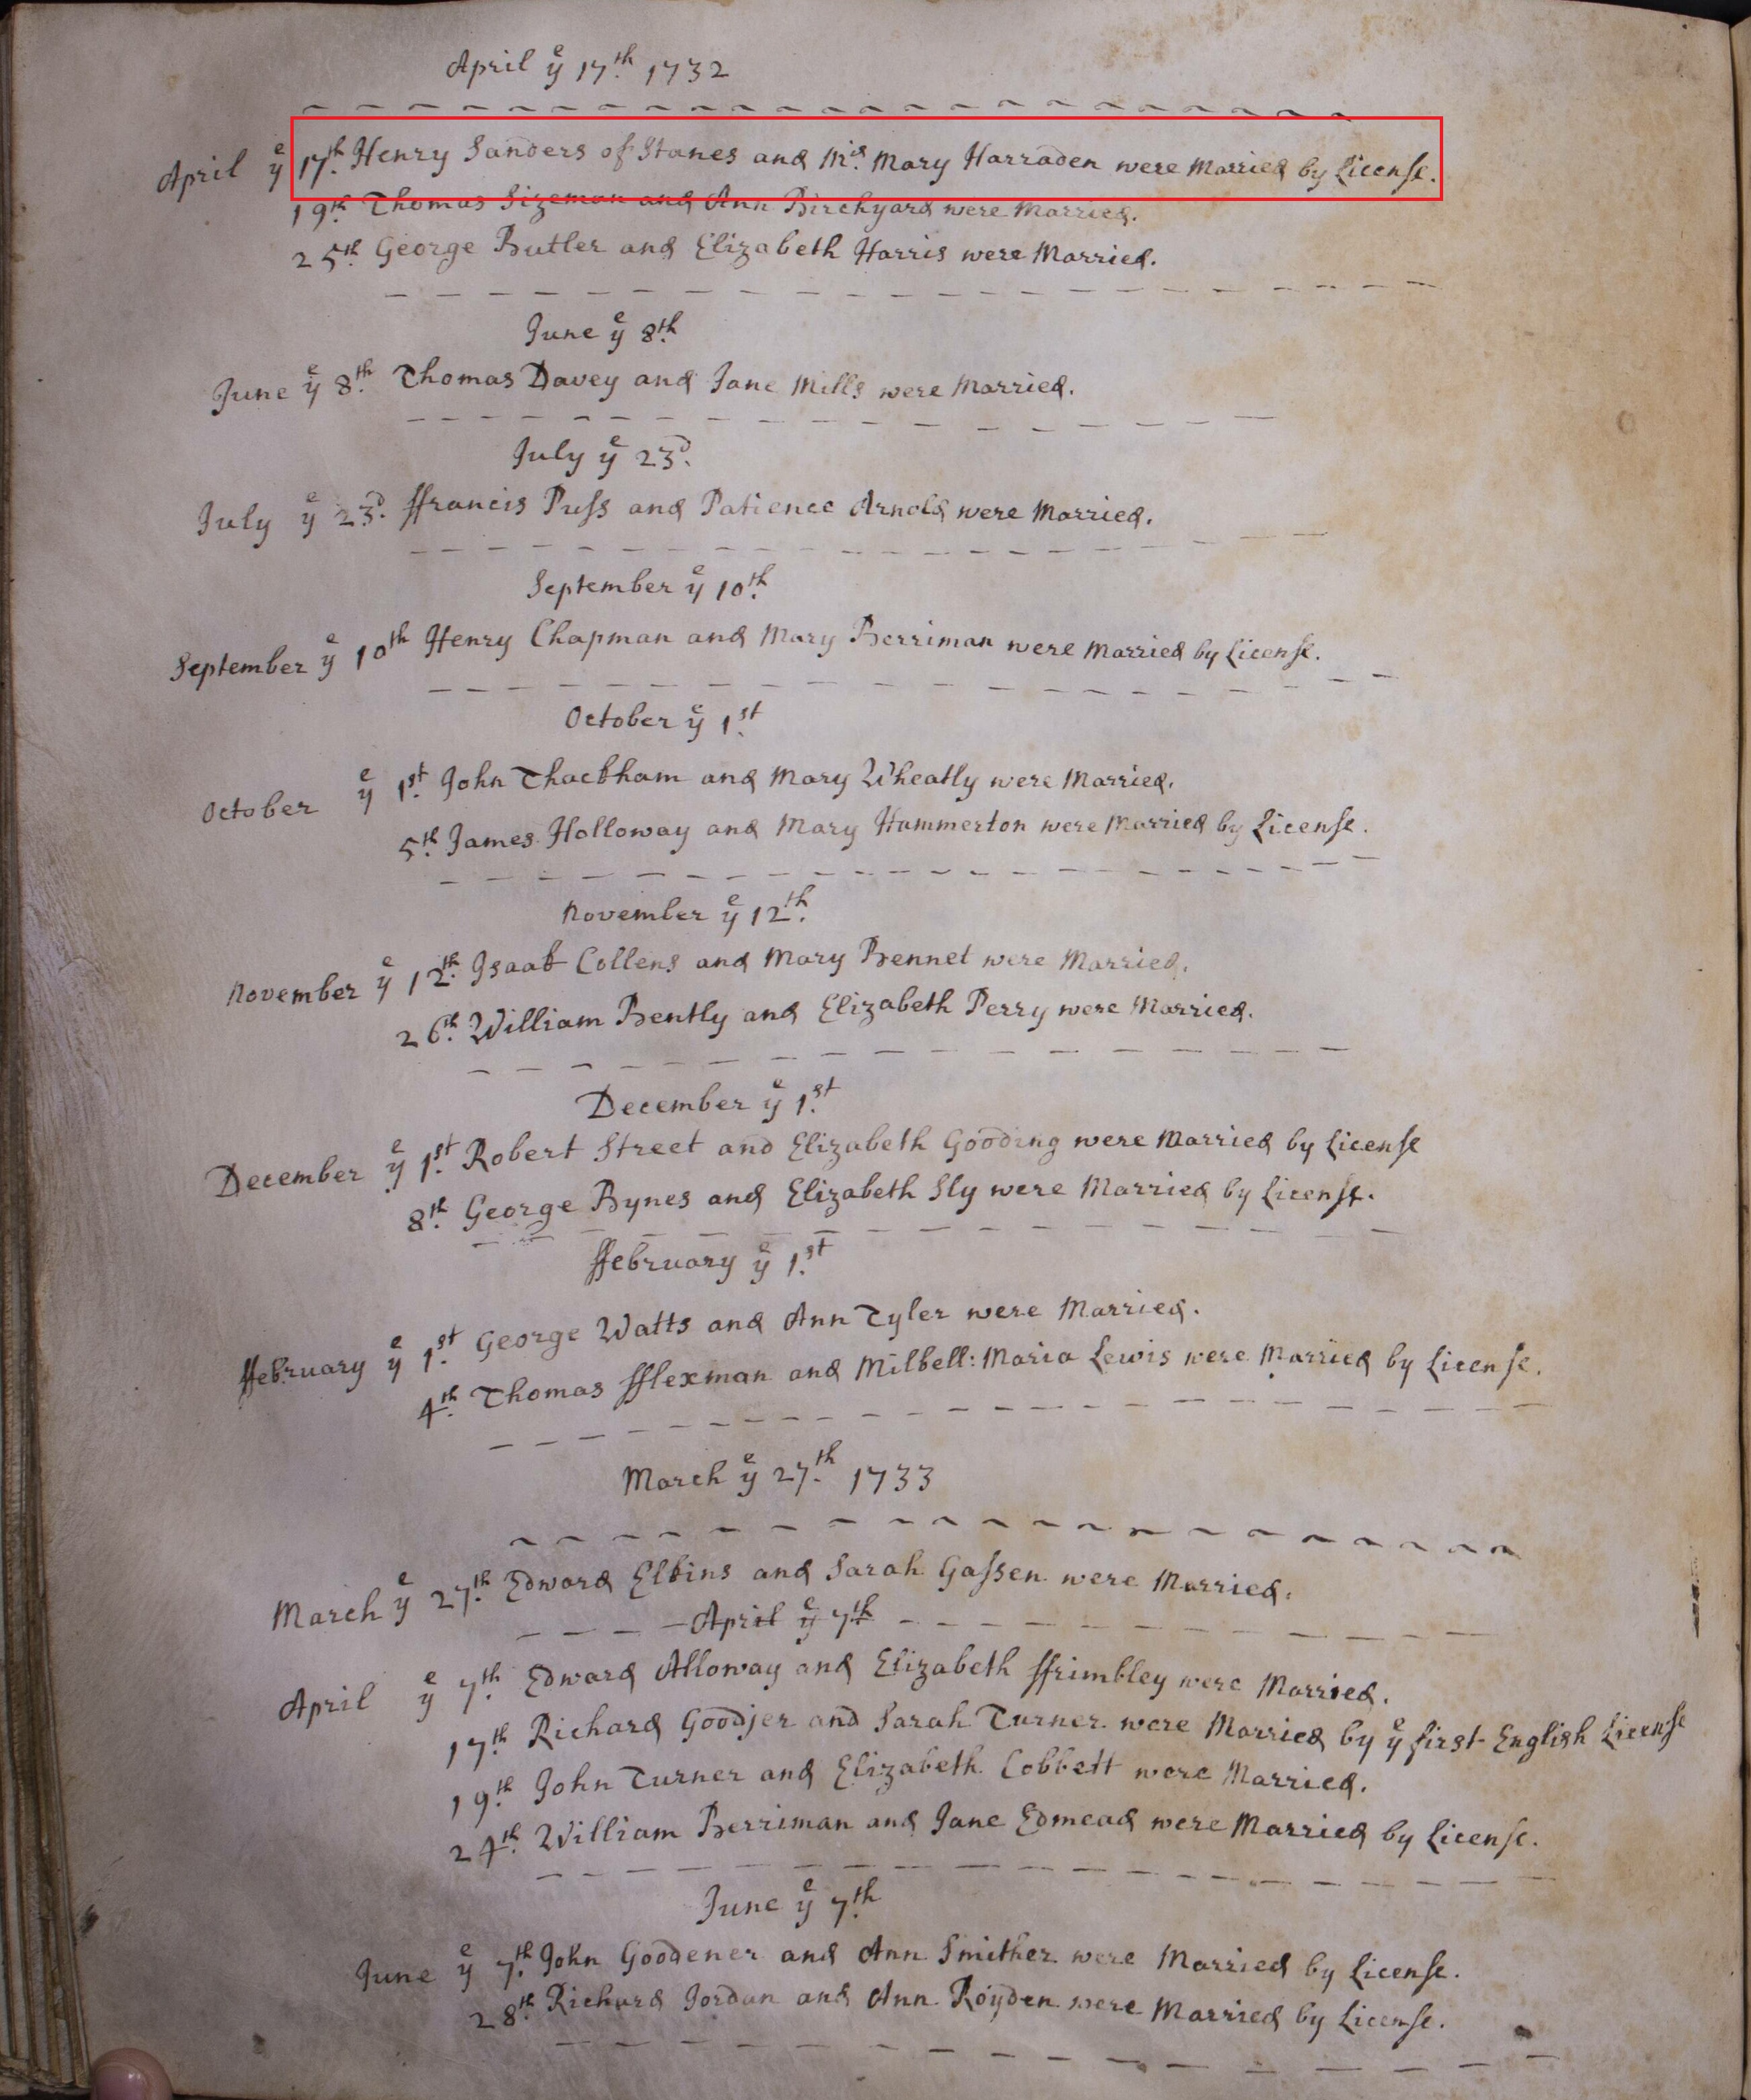 April yᵉ 17th 1732
April yᵉ 17th Henry Sanders of Stanes and Mrs Mary Harraden were Married by License.
19th Thomas Sizeman and Ann Birchyard were Married.
25th George Butler and Elizabeth Harris were Married.
June yᵉ 8th
June yᵉ 8th Thomas Davey and Jane Mills were Married.
July yᵉ 23d
July yᵉ 23d ffrancis Puſs and Patience Arnold were Married.
September yᵉ 10th
September yᵉ 10th Henry Chapman and Mary Berriman were Married by License.
October yᵉ 1st
October yᵉ 1st John Thackham and Mary Wheatly were Married.
5th James Holloway and Mary Hammerton were Married by License.
November yᵉ 12th
November yᵉ 12th Isaak Collens and Mary Bennet were Married.
26th William Bently and Elizabeth Perry were Married.
December yᵉ 1st
December yᵉ 1st Robert Street and Elizabeth Gooding were Married by License
8th George Bynes and Elizabeth Sly were Married by License.
ffebruary yᵉ 1st
ffebruary yᵉ 1st George Watts and Ann Tyler were Married.
4th Thomas fflexman and Milkell: Maria Lewis were Married by License.
March yᵉ 27th 1733
March yᵉ 27th Edward Elkins and Sarah Gaſsen were Married.
April yᵉ 7th
April yᵉ 7th Edward Alloway and Elizabeth ffrimbley were Married.
17th Richard Goodjer and Sarah Turner were Married by yᵉ first English License
19th John Turner and Elizabeth Cobbett were Married.
24th William Berriman and Jane Edmead were Married by License.
June yᵉ 7th
June yᵉ 7th John Goodener and Ann Smither were Married by License.
28th Richard Jordan and Ann Royden were Married by License.